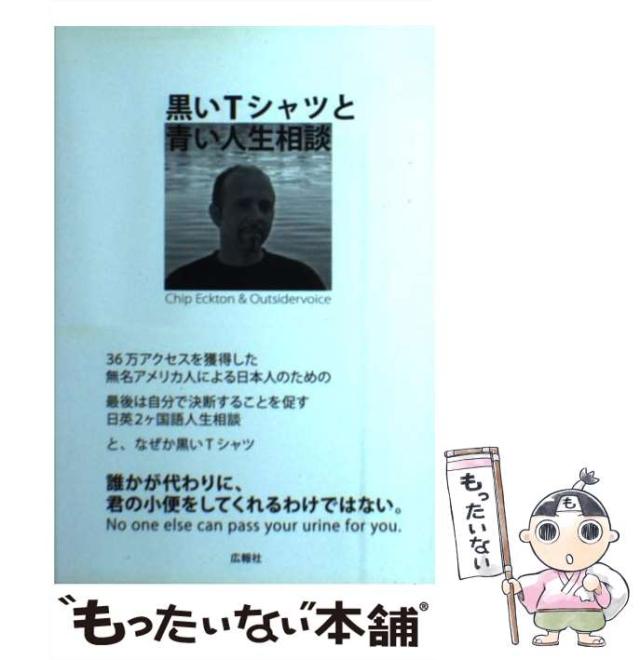 黒いTシャツと
青い人生相談
Chip Eckton & Outsidervoice
36万アクセスを獲得した
無名アメリカ人による日本人のための
最後は自分で決断することを促す
日英2ヶ国語人生相談
と、なぜか黒いTシャツ
誰かが代わりに、
君の小便をしてくれるわけではない。
No one else can pass your urine for you.
広報社
もったいない
も
"もったいない"本舗®